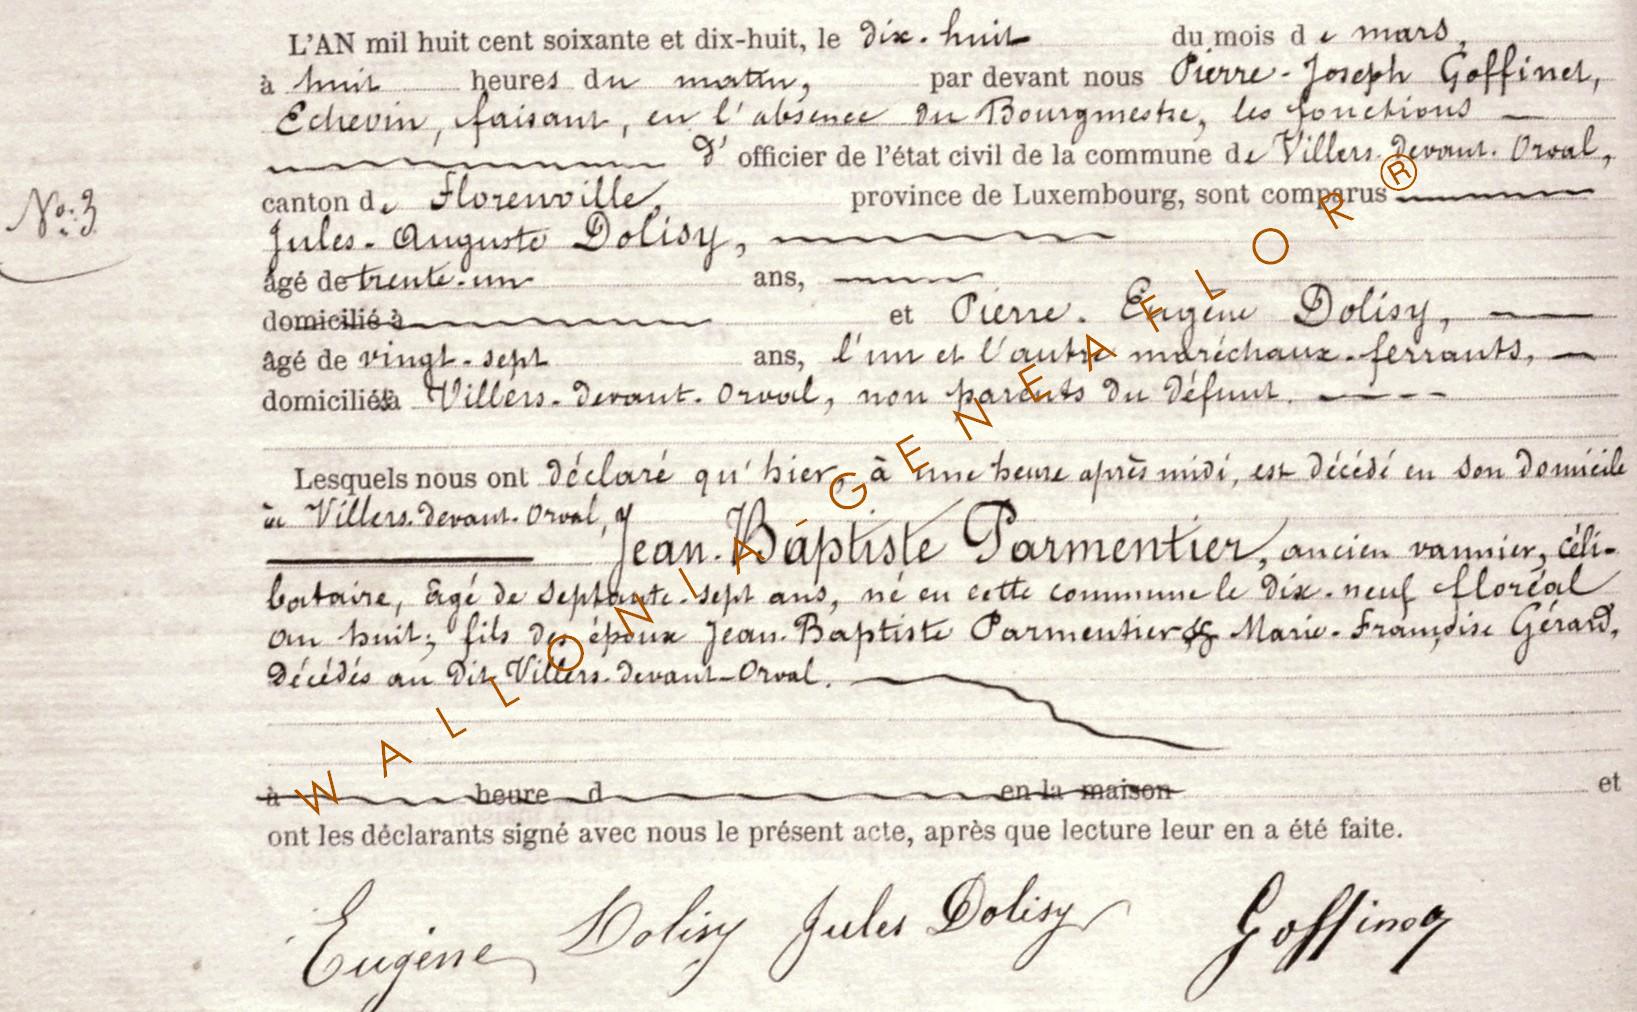 L'AN mil huit cent soixante et dix-huit, le dix-huit du mois de mars,
à huit heures du matin, par devant nous Pierre-Joseph Goffinet,
Echevin, faisant, en l'absence du Bourgmestre, les fonctions
d'officier de l'état civil de la commune de Villers-devant-Orval,
canton de Florenville, province de Luxembourg, sont comparus
No: 3
Jules-Auguste Dolisy,
âgé de trente-un ans,
domicilié à et Pierre-Eugène Dolisy,
âgé de vingt-sept ans, l'un et l'autre maréchaux-ferrants,
domiciliés à Villers-devant-Orval, non parents du défunt.
Lesquels nous ont déclaré qu'hier, à une heure après midi, est décédé en son domicile
à Villers-devant-Orval,
Jean-Baptiste Parmentier, ancien vannier, céli-
bataire, âgé de septante-sept ans, né en cette commune le dix-neuf floréal
an huit; fils des époux Jean-Baptiste Parmentier & Marie-Françoise Gérard,
décédés au dit Villers-devant-Orval.
à heure d en la maison et
ont les déclarants signé avec nous le présent acte, après que lecture leur en a été faite.
Eugène Dolisy Jules Dolisy Goffinet
WALLONIA-GENEAFLOR®